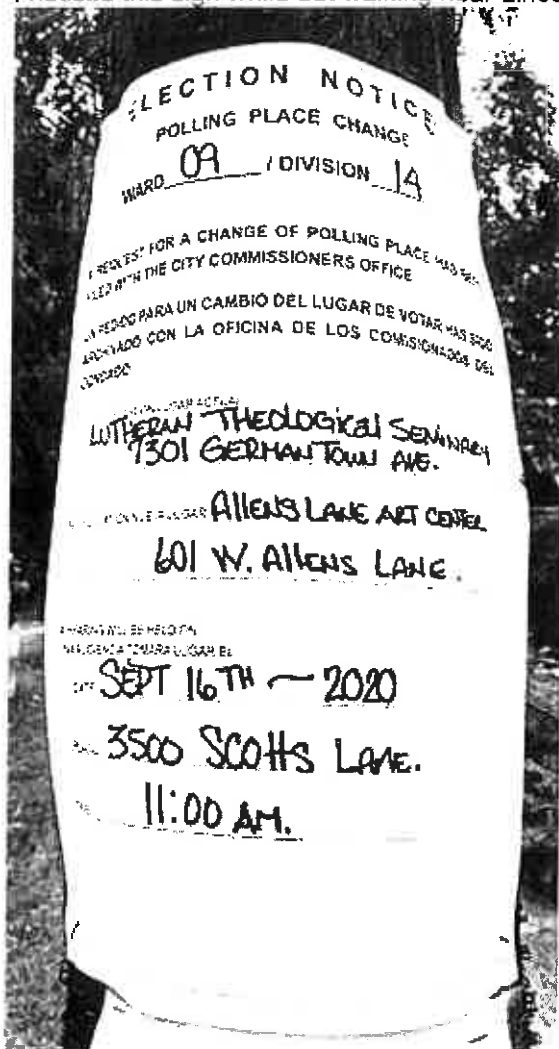 ELECTION NOTICE
POLLING PLACE CHANGE
WARD 09 / DIVISION 14
A REQUEST FOR A CHANGE OF POLLING PLACE HAS BEEN
FILED WITH THE CITY COMMISSIONERS OFFICE
UN PEDIDO PARA UN CAMBIO DEL LUGAR DE VOTAR HAS SIDO
ARCHIVADO CON LA OFICINA DE LOS COMISIONADOS DEL
CONDADO
LUGAR ACTUAL
LUTHERAN THEOLOGICAL SEMINARY
7301 GERMANTOWN AVE.
ALLENS LANE ART CENTER
601 W. ALLENS LANE.
A HEARING WILL BE HELD ON
DATE SEPT 16TH ~ 2020
3500 SCOTTS LANE.
11:00 AM.